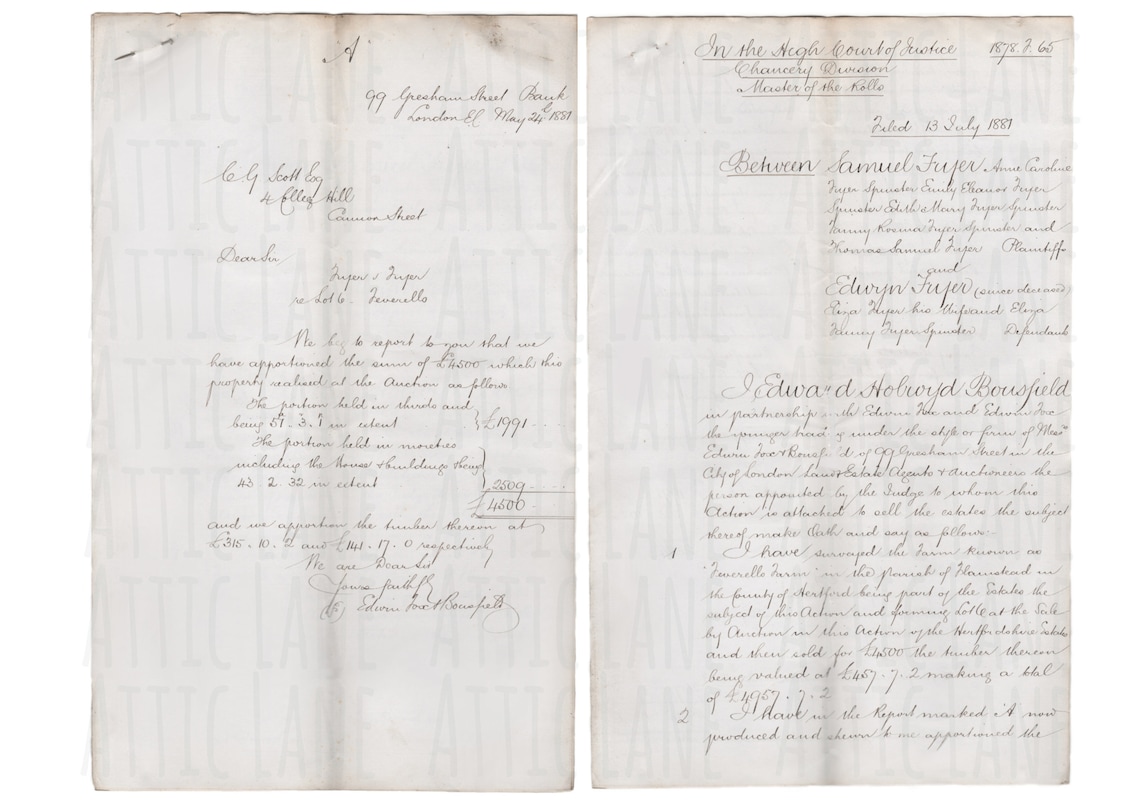 A
99 Gresham Street Bank
London EC May 24th 1881
C G Scott Esq
4 College Hill
Cannon Street
Dear Sir
Fryer v Fryer
re Lot 6. Feverells
We beg to report to you that we
have apportioned the sum of £4500 which this
property realised at the Auction as follows
The portion held in thirds and
being 57. 3. 1 in extent } £1991
The portion held in moieties
including the House & buildings being
43. 2. 32 in extent } 2509
£4500
and we apportion the timber thereon at
£315. 10. 2 and £141. 17. 0 respectively
We are Dear Sir
Yours faithfly
(s) Edwin Fox & Bousfield
In the High Court of Justice 1878. F. 65
Chancery Division
Master of the Rolls
Filed 13 July 1881
Between Samuel Fryer Anne Caroline
Fryer Spinster Emily Eleanor Fryer
Spinster Edith Mary Fryer Spinster
Fanny Rosina Fryer Spinster and
Thomas Samuel Fryer Plaintiffs
and
Edwyn Fryer (since deceased)
Eliza Fryer his Wife and Eliza
Fanny Fryer Spinster Defendants
I Edward Holroyd Bousfield
in partnership with Edwin Fox and Edwin Fox
the younger trad g under the style or firm of Messrs
Edwin Fox & Bousf d of 99 Gresham Street in the
City of London Land & Estate Agents & Auctioneers the
person appointed by the Judge to whom this
Action is attached to sell the estates the subject
thereof make Oath and say as follows:-
1 I have surveyed the Farm known as
"Feverells Farm" in the parish of Flamstead in
the County of Hertford being part of the Estates the
subject of this Action and forming Lot 6 at the Sale
by Auction in this Action of the Hertfordshire Estates
and then sold for £4500 the timber thereon
being valued at £457. 7. 2 making a total
of £4957. 7. 2
2 I have in the Report marked A now
produced and shewn to me apportioned the
ATTIC LANE